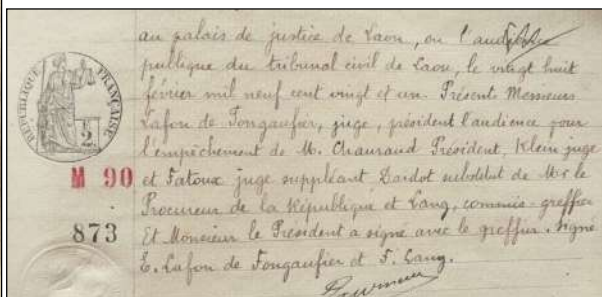 au palais de justice de Laon, en l'audience
publique du tribunal civil de Laon, le vingt huit
février mil neuf cent vingt et un. Présents Messieurs
Lafon de Fongaufier, juge, président l'audience pour
l'empêchement de M. Chauraud Président, Klein juge
et Fatoux juge suppléant Dardot substitut de Mr le
Procureur de la République et Lang, commis-greffier
Et Monsieur le Président a signé avec le greffier. Signé
E. Lafon de Fongaufier et F. Lang.
RÉPUBLIQUE FRANÇAISE
2
M 90
873